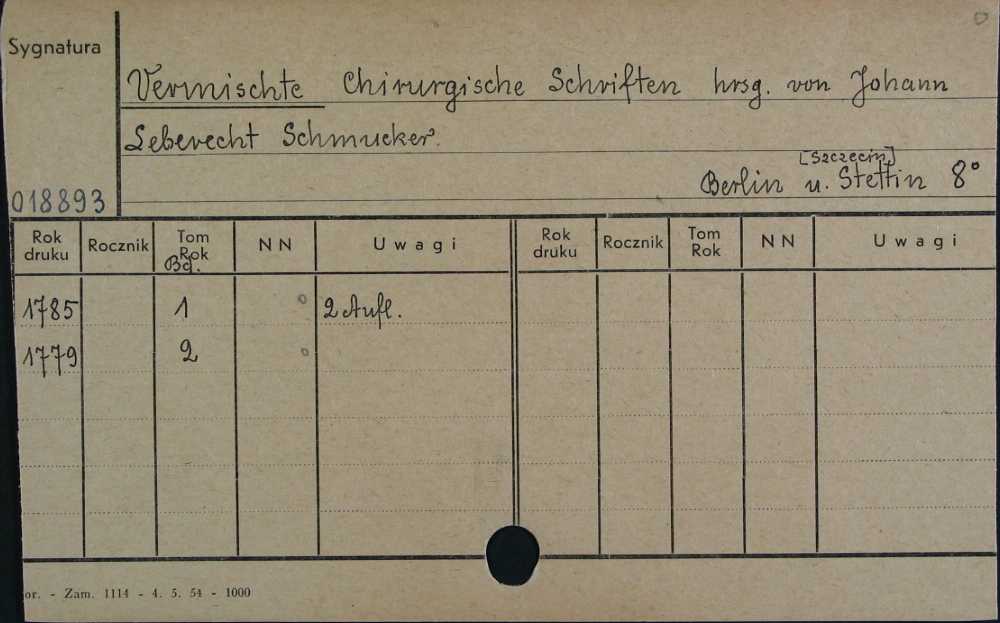 Sygnatura
Vermischte Chirurgische Schriften hrsg. von Johann
Leberecht Schmucker.
[Szczecin]
Berlin u. Stettin 8°
018893
Rok druku Rocznik Tom Rok Bd. NN Uwagi Rok druku Rocznik Tom Rok NN Uwagi
1785 1 2 Aufl.
1779 2
or. - Zam. 1114 - 4. 5. 54 - 1000